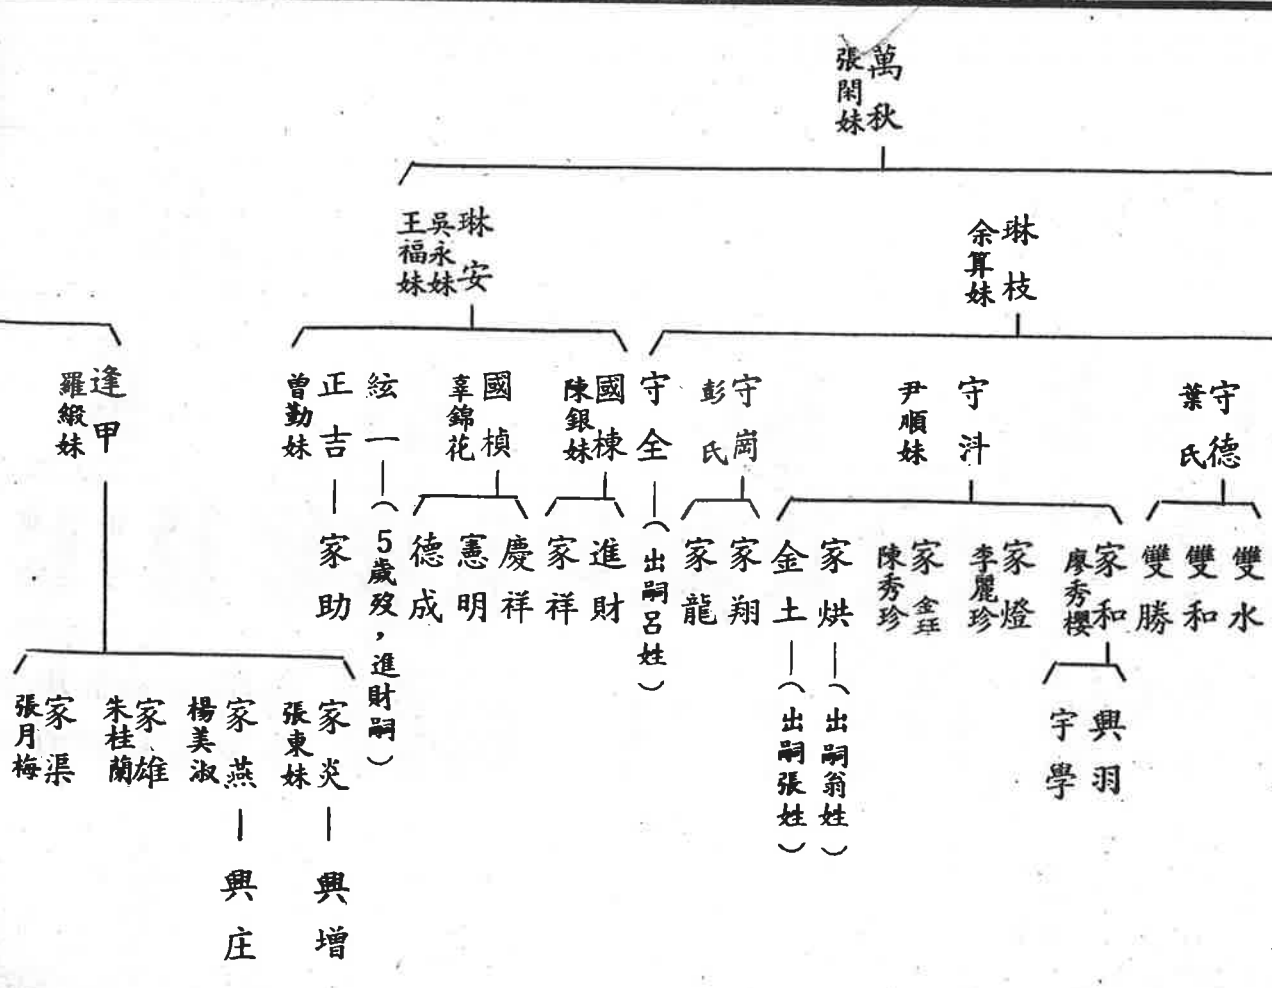 萬秋
張閑妹
琳枝
余算妹
琳安
吳永妹
王福妹
守德
葉氏
守汫
尹順妹
守崗
彭氏
守全
(出嗣呂姓)
國棟
陳銀妹
國楨
辜錦花
絃一
(5歲歿,進財嗣)
正吉
曾勤妹
逢甲
羅緞妹
雙水
雙和
雙勝
家和
廖秀櫻
家燈
李麗珍
家金玨
陳秀珍
家烘
(出嗣翁姓)
金土
(出嗣張姓)
家翔
家龍
進財
家祥
慶祥
憲明
德成
家助
興羽
宇學
家炎
張東妹
家燕
楊美淑
家雄
朱桂蘭
家渠
張月梅
興增
興庄